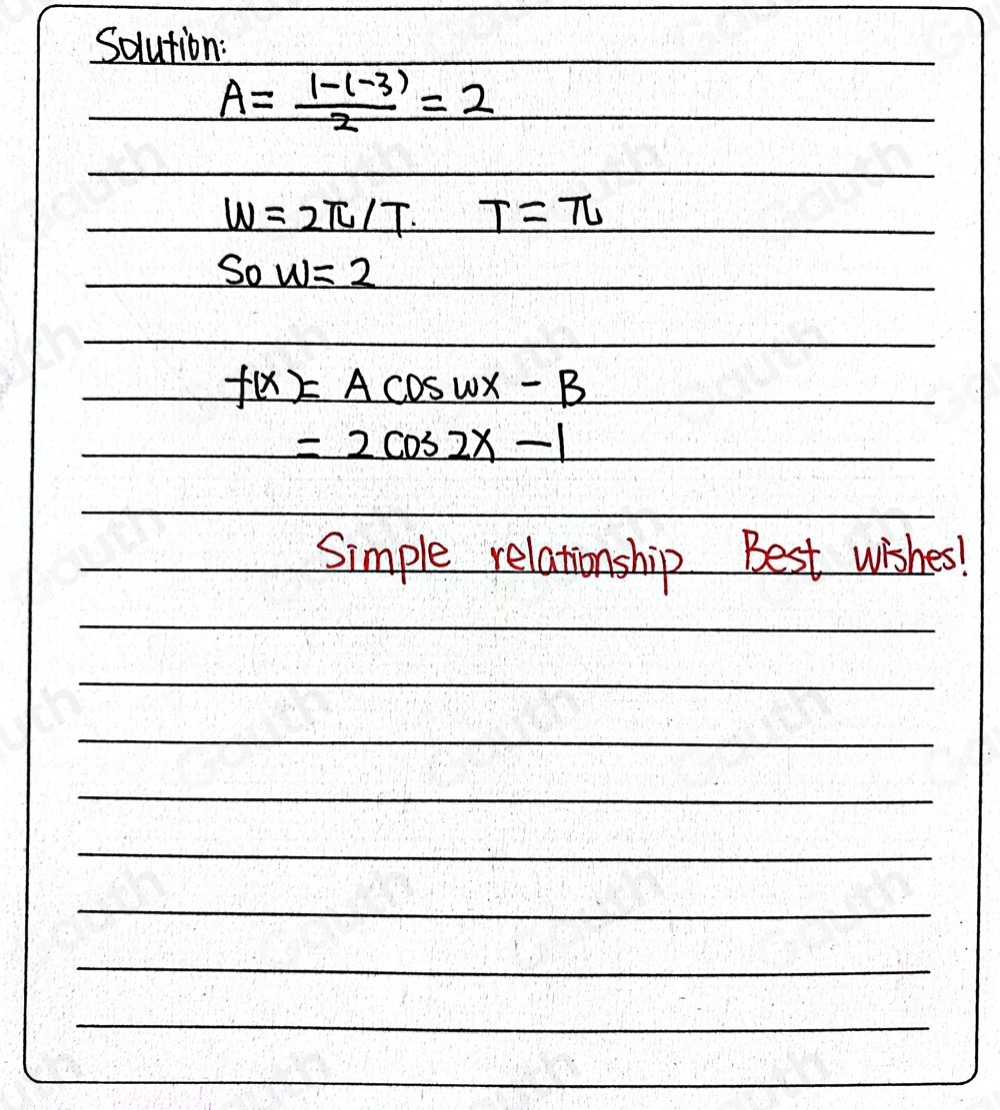 Solution:
A = (1-(-3))/2 = 2
W = 2π/T. T = π
So W = 2
f(x) = A cos wx - B
= 2 cos 2x - 1
Simple relationship. Best wishes!
Gauth